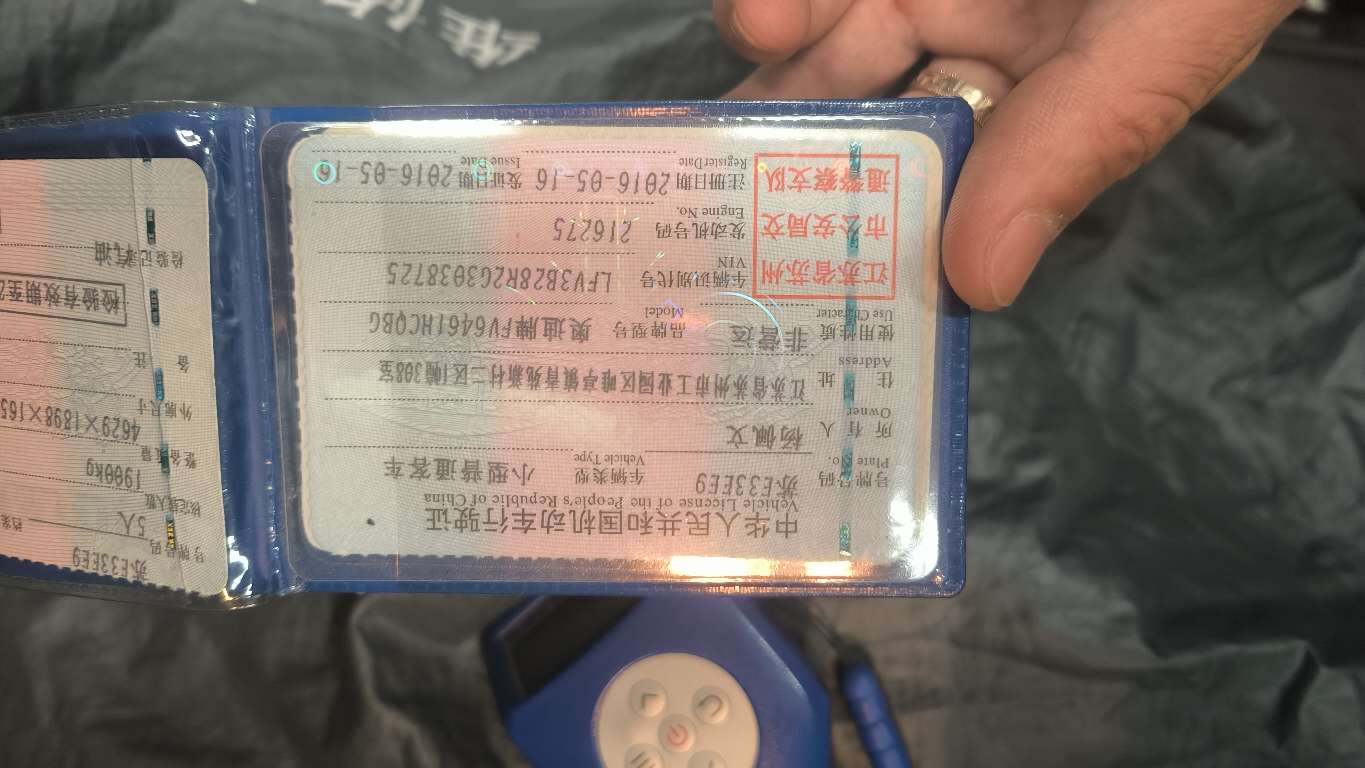 中华人民共和国机动车行驶证
Vehicle License of the People's Republic of China
号牌号码 苏E33EE9 车辆类型 小型普通客车
Plate No. Vehicle Type
所有人 杨佩文
Owner
住址 江苏省苏州市工业园区唯亭镇青苑新村二区1幢308室
Address
使用性质 非营运 品牌型号 奥迪牌FV6461HCQBG
Use Character Model
车辆识别代号 LFV3B28R2G3038725
VIN
发动机号码 216275
Engine No.
注册日期 2016-05-16 发证日期 2016-05-16
Register Date Issue Date
江苏省苏州
市公安局交
通警察支队
号牌号码 苏E33EE9
核定载人数 5人
整备质量 1900kg
外廓尺寸 4629×1898×165
备注
检验有效期至2
检验记录 汽油